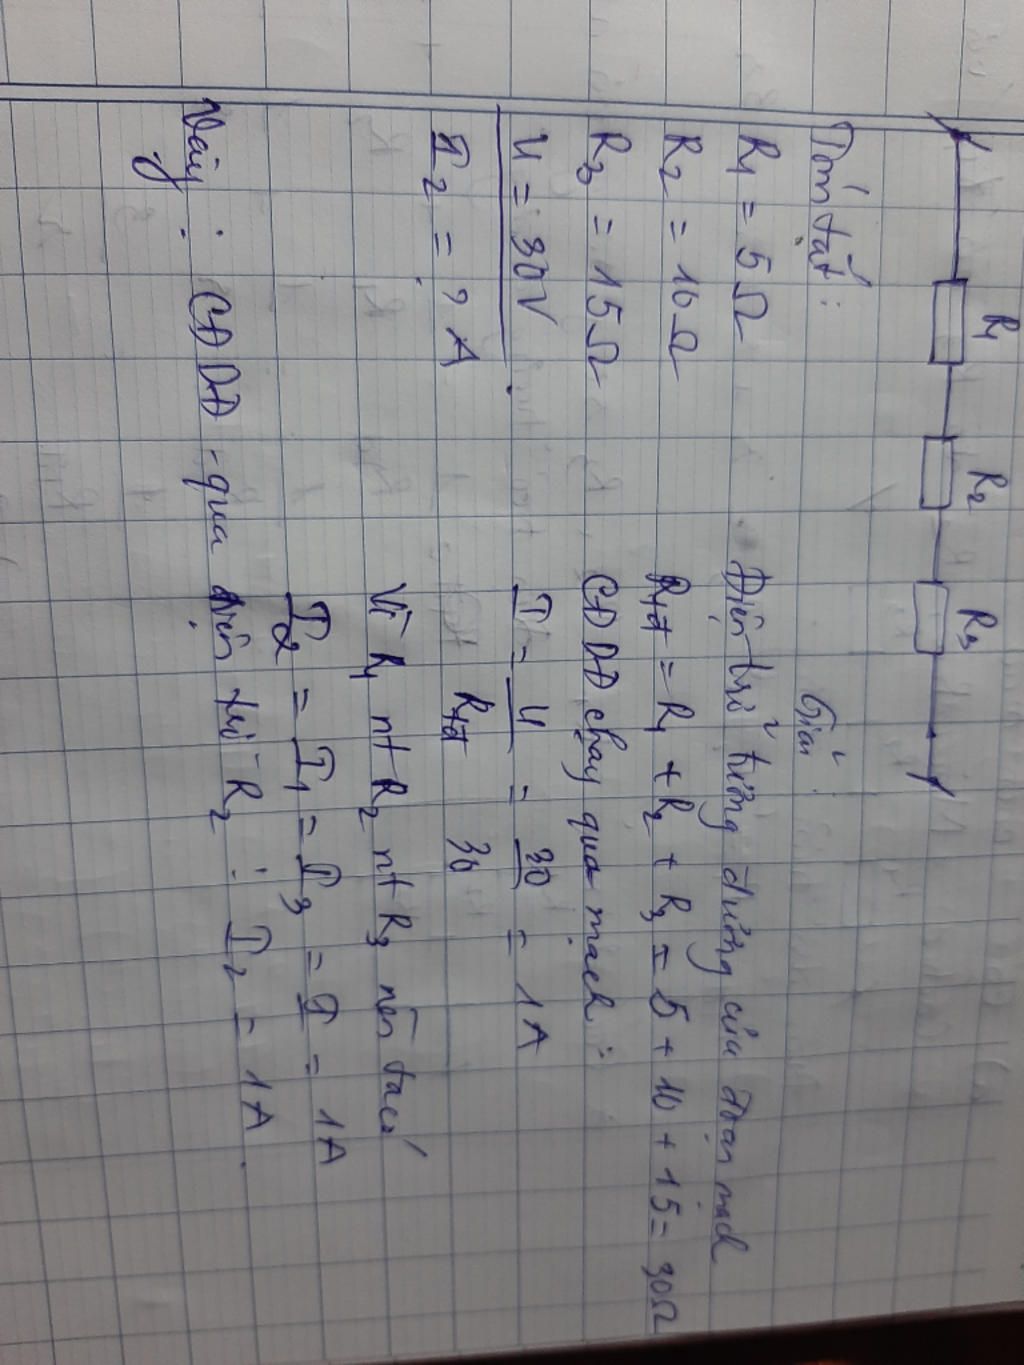 R1 R2 R3
Tóm tắt:
R1 = 5Ω
R2 = 10Ω
R3 = 15Ω
U = 30V
I2 = ? A
Giải
Điện trở tương đương của đoạn mạch
Rtđ = R1 + R2 + R3 = 5 + 10 + 15 = 30Ω
CĐDĐ chạy qua mạch:
I = U/Rtđ = 30/30 = 1A
Vì R1 nt R2 nt R3 nên ta có
I2 = I1 = I3 = I = 1A
Vậy: CĐDĐ qua điện trở R2: I2 = 1A